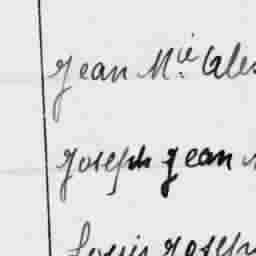 Jean M.ie Ales
Joseph Jean
Louis Joseph